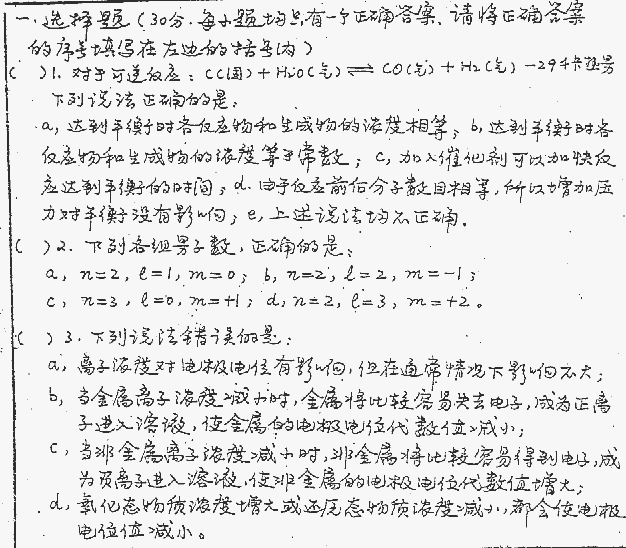 一.选择题(30分.每小题均只有一个正确答案,请将正确答案
的序号填写在左边的括号内)
( )1.对于可逆反应:C(固)+H₂O(气)⇌CO(气)+H₂(气)-29千卡
下列说法正确的是:
a,达到平衡时各反应物和生成物的浓度相等;b,达到平衡时各
反应物和生成物的浓度等于常数;c,加入催化剂可以加快反
应达到平衡的时间;d.由于反应前后分子数目相等,所以增加压
力对平衡没有影响;e,上述说法均不正确.
( )2.下列各组量子数,正确的是:
a,n=2,l=1,m=0;b,n=2,l=2,m=-1;
c,n=3,l=0,m=+1;d,n=2,l=3,m=+2。
( )3.下列说法错误的是:
a,离子浓度对电极电位有影响,但在通常情况下影响不大;
b,当金属离子浓度减小时,金属将比较容易失去电子,成为正离
子进入溶液,使金属的电极电位代数值减小;
c,当非金属离子浓度减小时,非金属将比较容易得到电子,成
为负离子进入溶液,使非金属的电极电位代数值增大;
d,氧化态物质浓度增大或还原态物质浓度减小,都会使电极
电位值减小。